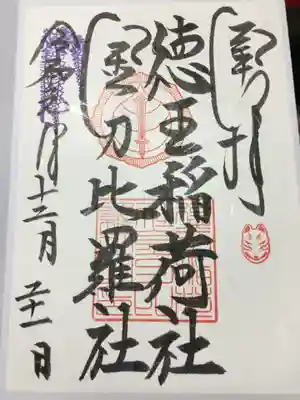 奉拝
徳王稲荷社
金刀比羅社
令和元年十二月二十一日